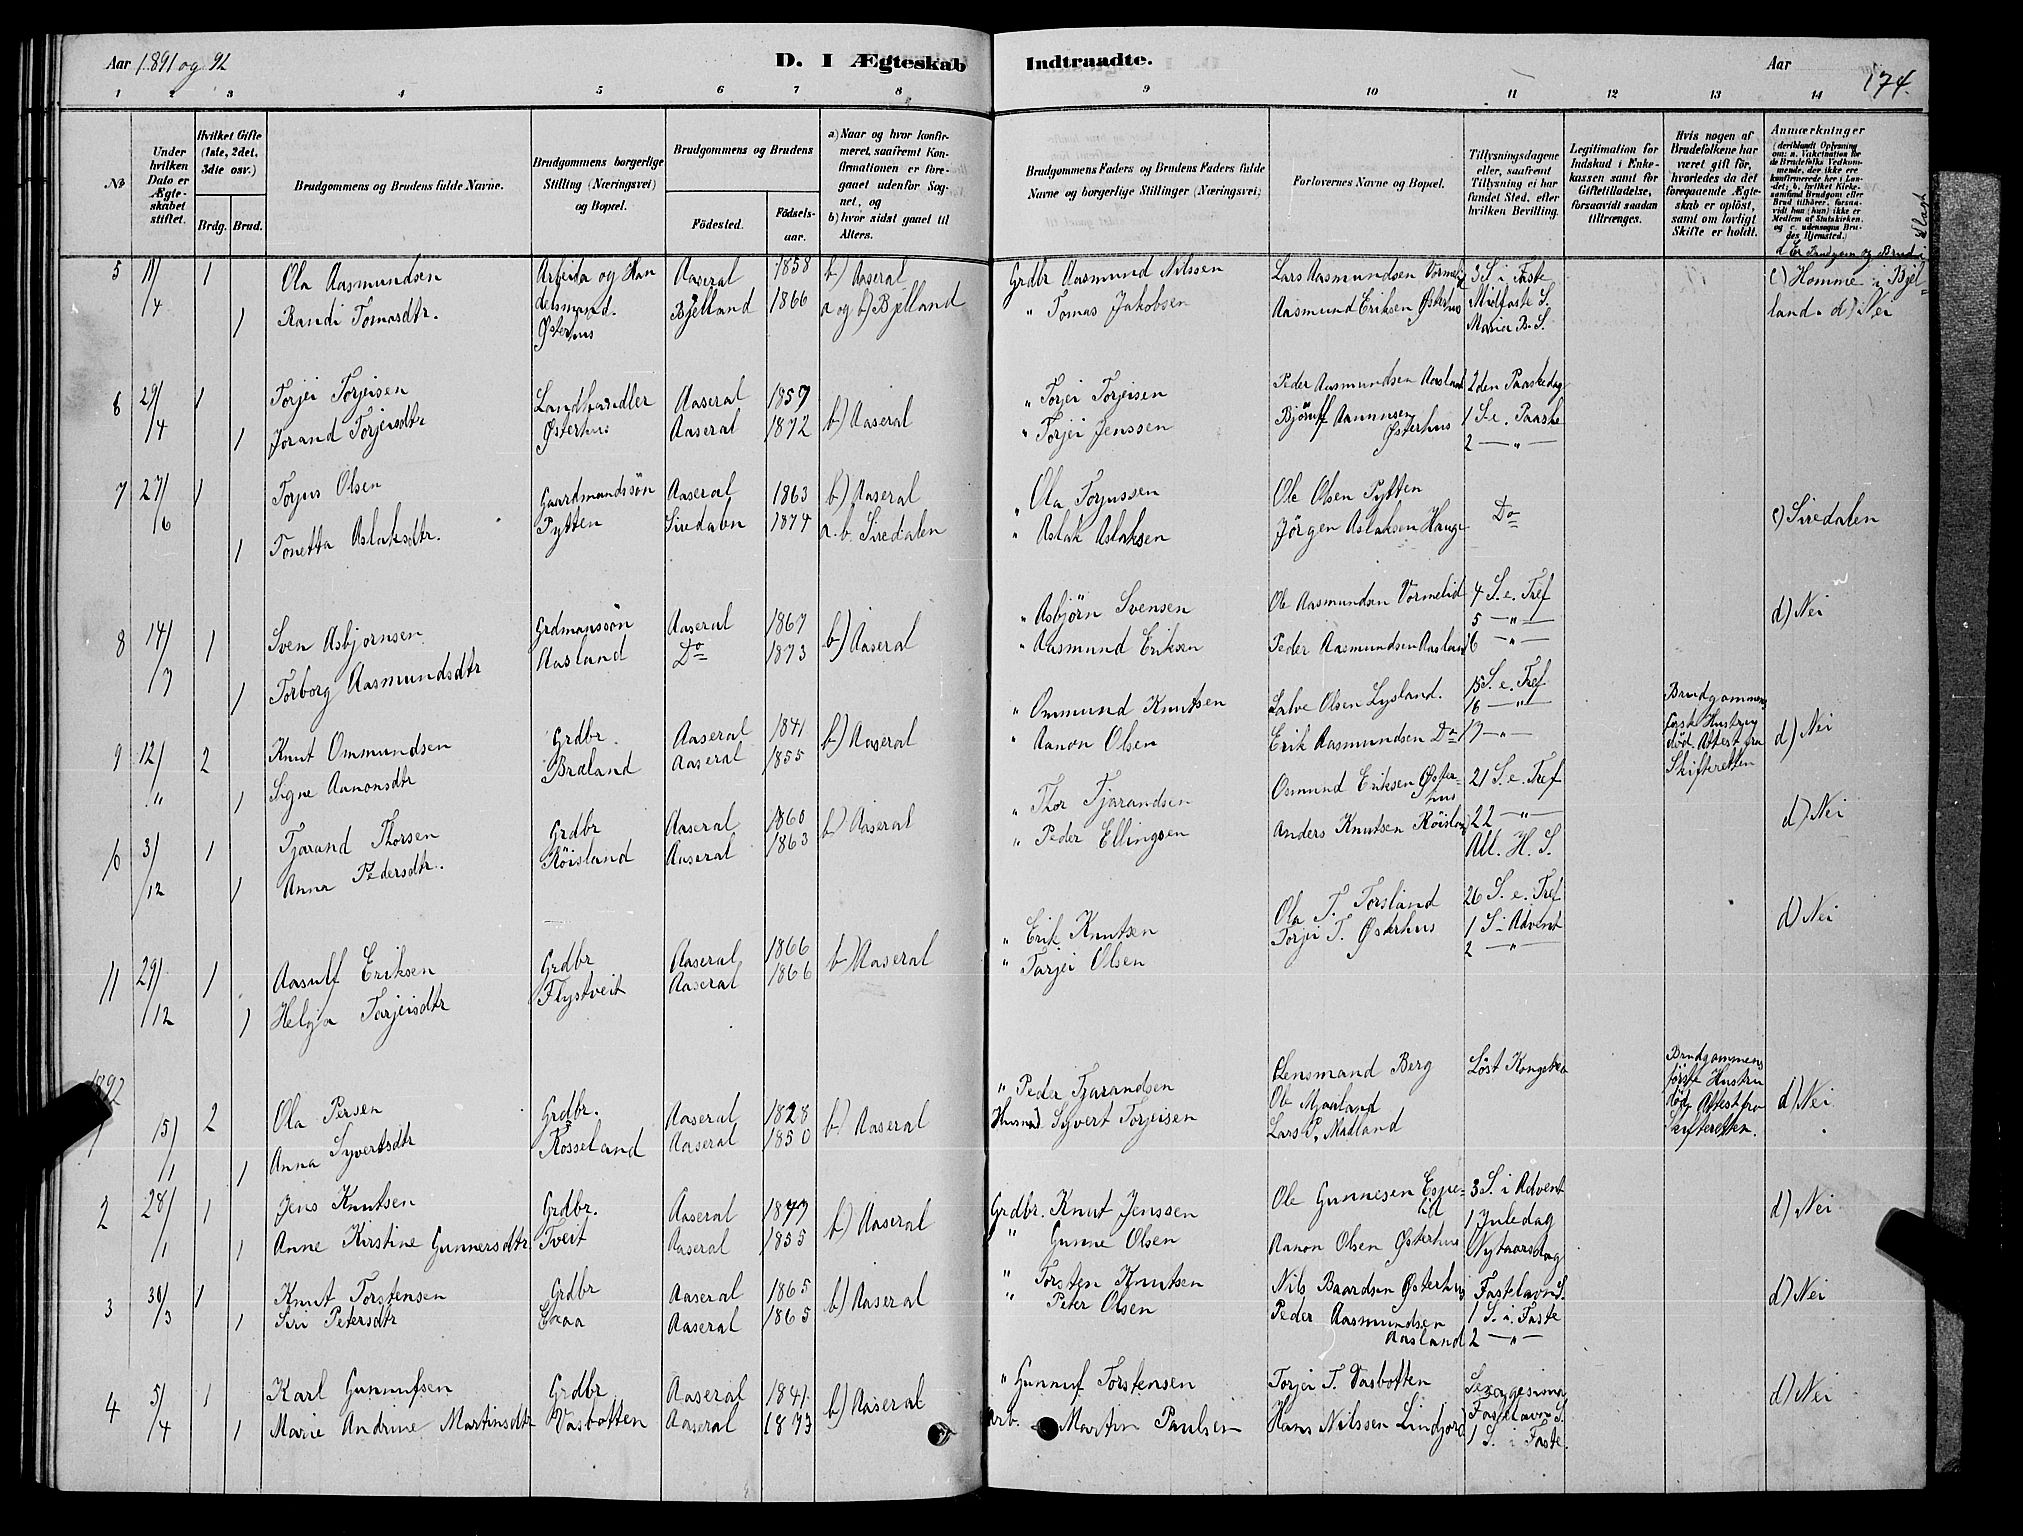 Aar 1891 og 92 D. I Ægteskab Indtraadte. Aar 174.
1 2 3 4 5 6 7 8 9 10 11 12 13 14
№
Under hvilken Dato er Ægteskabet stiftet.
Hvilket Gifte (1ste, 2det, 3die osv.)
Brdg. Brud.
Brudgommens og Brudens fulde Navne.
Brudgommens borgerlige Stilling (Næringsvei) og Bopæl.
Brudgommens og Brudens
Fødested. Fødselsaar.
a) Naar og hvor konfirmeret, saafremt Konfirmationen er foregaaet udenfor Sognet, og
b) hvor sidst gaaet til Alters.
Brudgommens Faders og Brudens Faders fulde Navne og borgerlige Stillinger (Næringsvei)
Forlovernes Navne og Bopæl.
Tillysningsdagene eller, saafremt Tillysning ei har fundet Sted, efter hvilken Bevilling.
Legitimation for Indskud i Enkekassen samt for Giftetilladelse, forsaavidt saadan tiltrænges.
Hvis nogen af Brudefolkene har været gift før, hvorledes da det foregaaende Ægteskab er opløst, samt om lovligt Skifte er holdt.
Anmærkninger (deriblandt Oplysning om: a. Vakcination for de Brudefolks Vedkommende, der ikke ere konfirmerede her i Landet; b. hvilket Kirkesamfund Brudgom eller Brud tilhører, forsaavidt han (hun) ikke er Medlem af Statskirken, og c. udensogns Brudes Hjemsted.)
d. Er Brudgom og Brud i Slægt
5 11/4 1 Ola Aasmundsen Arbeida og Han Aaseral 1858 b) Aaseral Grdbr Aasmund Nilssen Lars Aasmundsen Vormelid 3 S. i Faste c) Homme i Bjel-
1 Randi Tomasdtr. delsmand. Bjelland 1866 a og b) Bjelland " Tomas Jakobsen Aasmund Eriksen Østerhus Midfaste S. land. d) Nei
Østerhus Mariæ B. S.
6 29/4 1 Torjei Torjeisen Landhandler Aaseral 1859 b) Aaseral " Torjei Torjeisen Peder Aasmundsen Aasland 2den Paaskedag
1 Jorand Torjeisdtr Østerhus Aaseral 1872 " Torjei Jenssen Bjørulf Aanunsen Østerhus 1 S. e. Paaske
2 — " —
7 27/6 1 Torjus Olsen Gaardmandssøn Aaseral 1863 b) Aaseral " Ola Torjussen Ole Olsen Pytten Do c) Siredalen
1 Tonetta Aslaksdtr. Pytten Siredalen 1874 a. b. Siredalen " Aslak Aslaksen Jørgen Aslaksen Hauge
8 14/7 1 Sven Asbjørnsen Grdmanssøn Aaseral 1867 b) Aaseral " Asbjørn Svensen Ole Aasmundsen Vormelid 4 S. e. Tref d) Nei
5 — " —
1 Torborg Aasmundsdtr Aasland Do 1873 " Aasmund Eriksen Peder Aasmundsen Aasland 6 — " —
9 12/" 2 Knut Ommundsen Grdbr. Aaseral 1841 b) Aaseral " Ommund Knutsen Salve Olsen Lysland. 15 S. e. Tref Brudgommens d) Nei
16 — " — første Hustru
1 Signe Aanonsdtr Braland Aaseral 1855 " Aanon Olsen Erik Aasmundsen Do 17 — " — død. Attest fra
Skifteretten
10 3/12 1 Tjarand Thorsen Grdbr Aaseral 1860 b) Aaseral " Thor Tjarandsen Osmund Eriksen Østerhus 21 S. e. Tref d) Nei
1 Anna Pedersdtr. Røisland Aaseral 1863 " Peder Ellingsen Anders Knutsen Røisland 22 — " —
All. H. S.
11 29/12 1 Aasulf Eriksen Grdbr Aaseral 1866 b) Aaseral " Erik Knutsen Ola T. Torsland 26 S. e. Tref d) Nei
1 Helga Torjeisdtr Flystveit Aaseral 1866 " Torjei Olsen Torjei T. Østerhus 1 S. i Advent
2 — " —
1892
1 15/1 2 Ola Persen Grdbr. Aaseral 1828 b) Aaseral " Peder Tjarandsen Lensmand Berg Løst Kongebrev Brudgommens d) Nei
Ole Mjaaland første Hustru
1 Anna Syvertsdtr Rosseland Aaseral 1850 Husmd Syvert Torjeisen Lars P. Madland død Attest fra
Skifteretten.
2 28/1 1 Jens Knutsen Grdbr. Aaseral 1847 b) Aaseral Grdbr. Knut Jenssen Ole Gunnesen Espelid 3 S. i Advent d) Nei
1 Juledag
1 Anne Kirstine Gunnersdtr Tveit Aaseral 1855 " Gunne Olsen Aanon Olsen Østerhus Nytaarsdag
3 30/3 1 Knut Torstensen Grdbr Aaseral 1865 b) Aaseral " Torsten Knutsen Nils Baardsen Østerhus Fastelavn S. d) Nei
1 Siri Petersdtr Eraa Aaseral 1865 " Peter Olsen Peder Aasmundsen Aasland 1 S. i. Faste
2 — " —
4 5/4 1 Karl Gunnufsen Grdbr Aaseral 1841 b) Aaseral " Gunnuf Torstensen Torjei T. Vasbotten Sexagesima d) Nei
1 Marie Andrine Martinsdtr Vasbotten Aaseral 1873 Arb. Martin Paulsen Hans Nilssen Lindjord Fastelavn S.
1 S. i Faste.